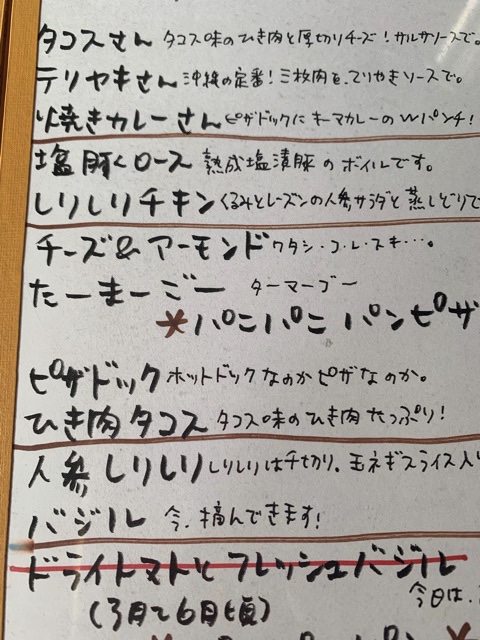 タコスさん タコス味のひき肉と厚切りチーズ！サルサソースで。
テリヤキさん 沖縄の定番！三枚肉を、てりやきソースで。
火焼きカレーさん ピザドックにキーマカレーのWパンチ！
塩豚くロース 熟成塩漬豚のボイルです。
しりしりチキン くるみとレーズンの人参サラダと蒸しどりで
チーズ&アーモンド ワタシ・コ・レ・スキ・・・。
たーまーごー ターマーゴー
*パニパニ パンピザ
ピザドック ホットドックなのかピザなのか。
ひき肉タコス タコス味のひき肉たっぷり！
人参しりしり しりしりは千切り。玉ネギスライス入り
バジル 今、摘んできます！
ドライトマトとフレッシュバジル
(3月で6月頃) 今日は、